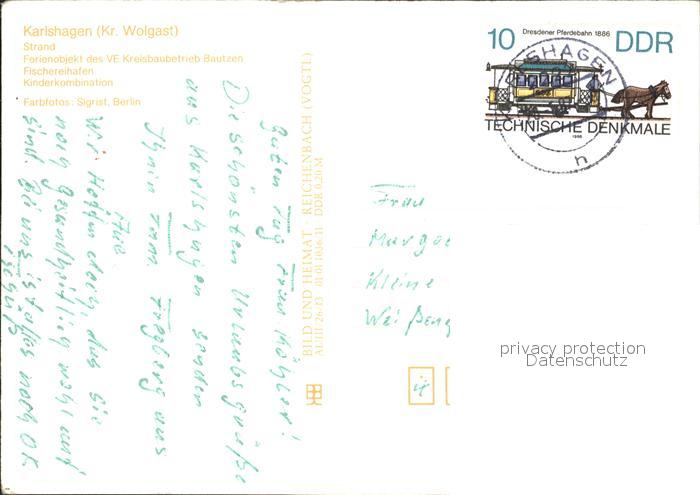 Karlshagen (Kr. Wolgast)
Strand
Ferienobjekt des VE Kreisbaubetrieb Bautzen
Fischereihafen
Kinderkombination
Farbfotos: Sigrist, Berlin
Guten Tag Frau
Die schönsten Urlaubsgrüße
aus Karlshagen senden
Ihnen Fam. Freyberg aus
Wir hoffen doch, das Sie
noch gesundheitlich wohl auf
sind. Bei uns ist alles noch OK
BILD UND HEIMAT · REICHENBACH (VOGTL)
A1/III/26/13 01 01 1046/11 DDR 0,20 M
10 Dresdener Pferdebahn 1886 DDR
TECHNISCHE DENKMALE
1986
KARLSHAGEN
h
Frau
Margot
Kleine
privacy protection
Datenschutz